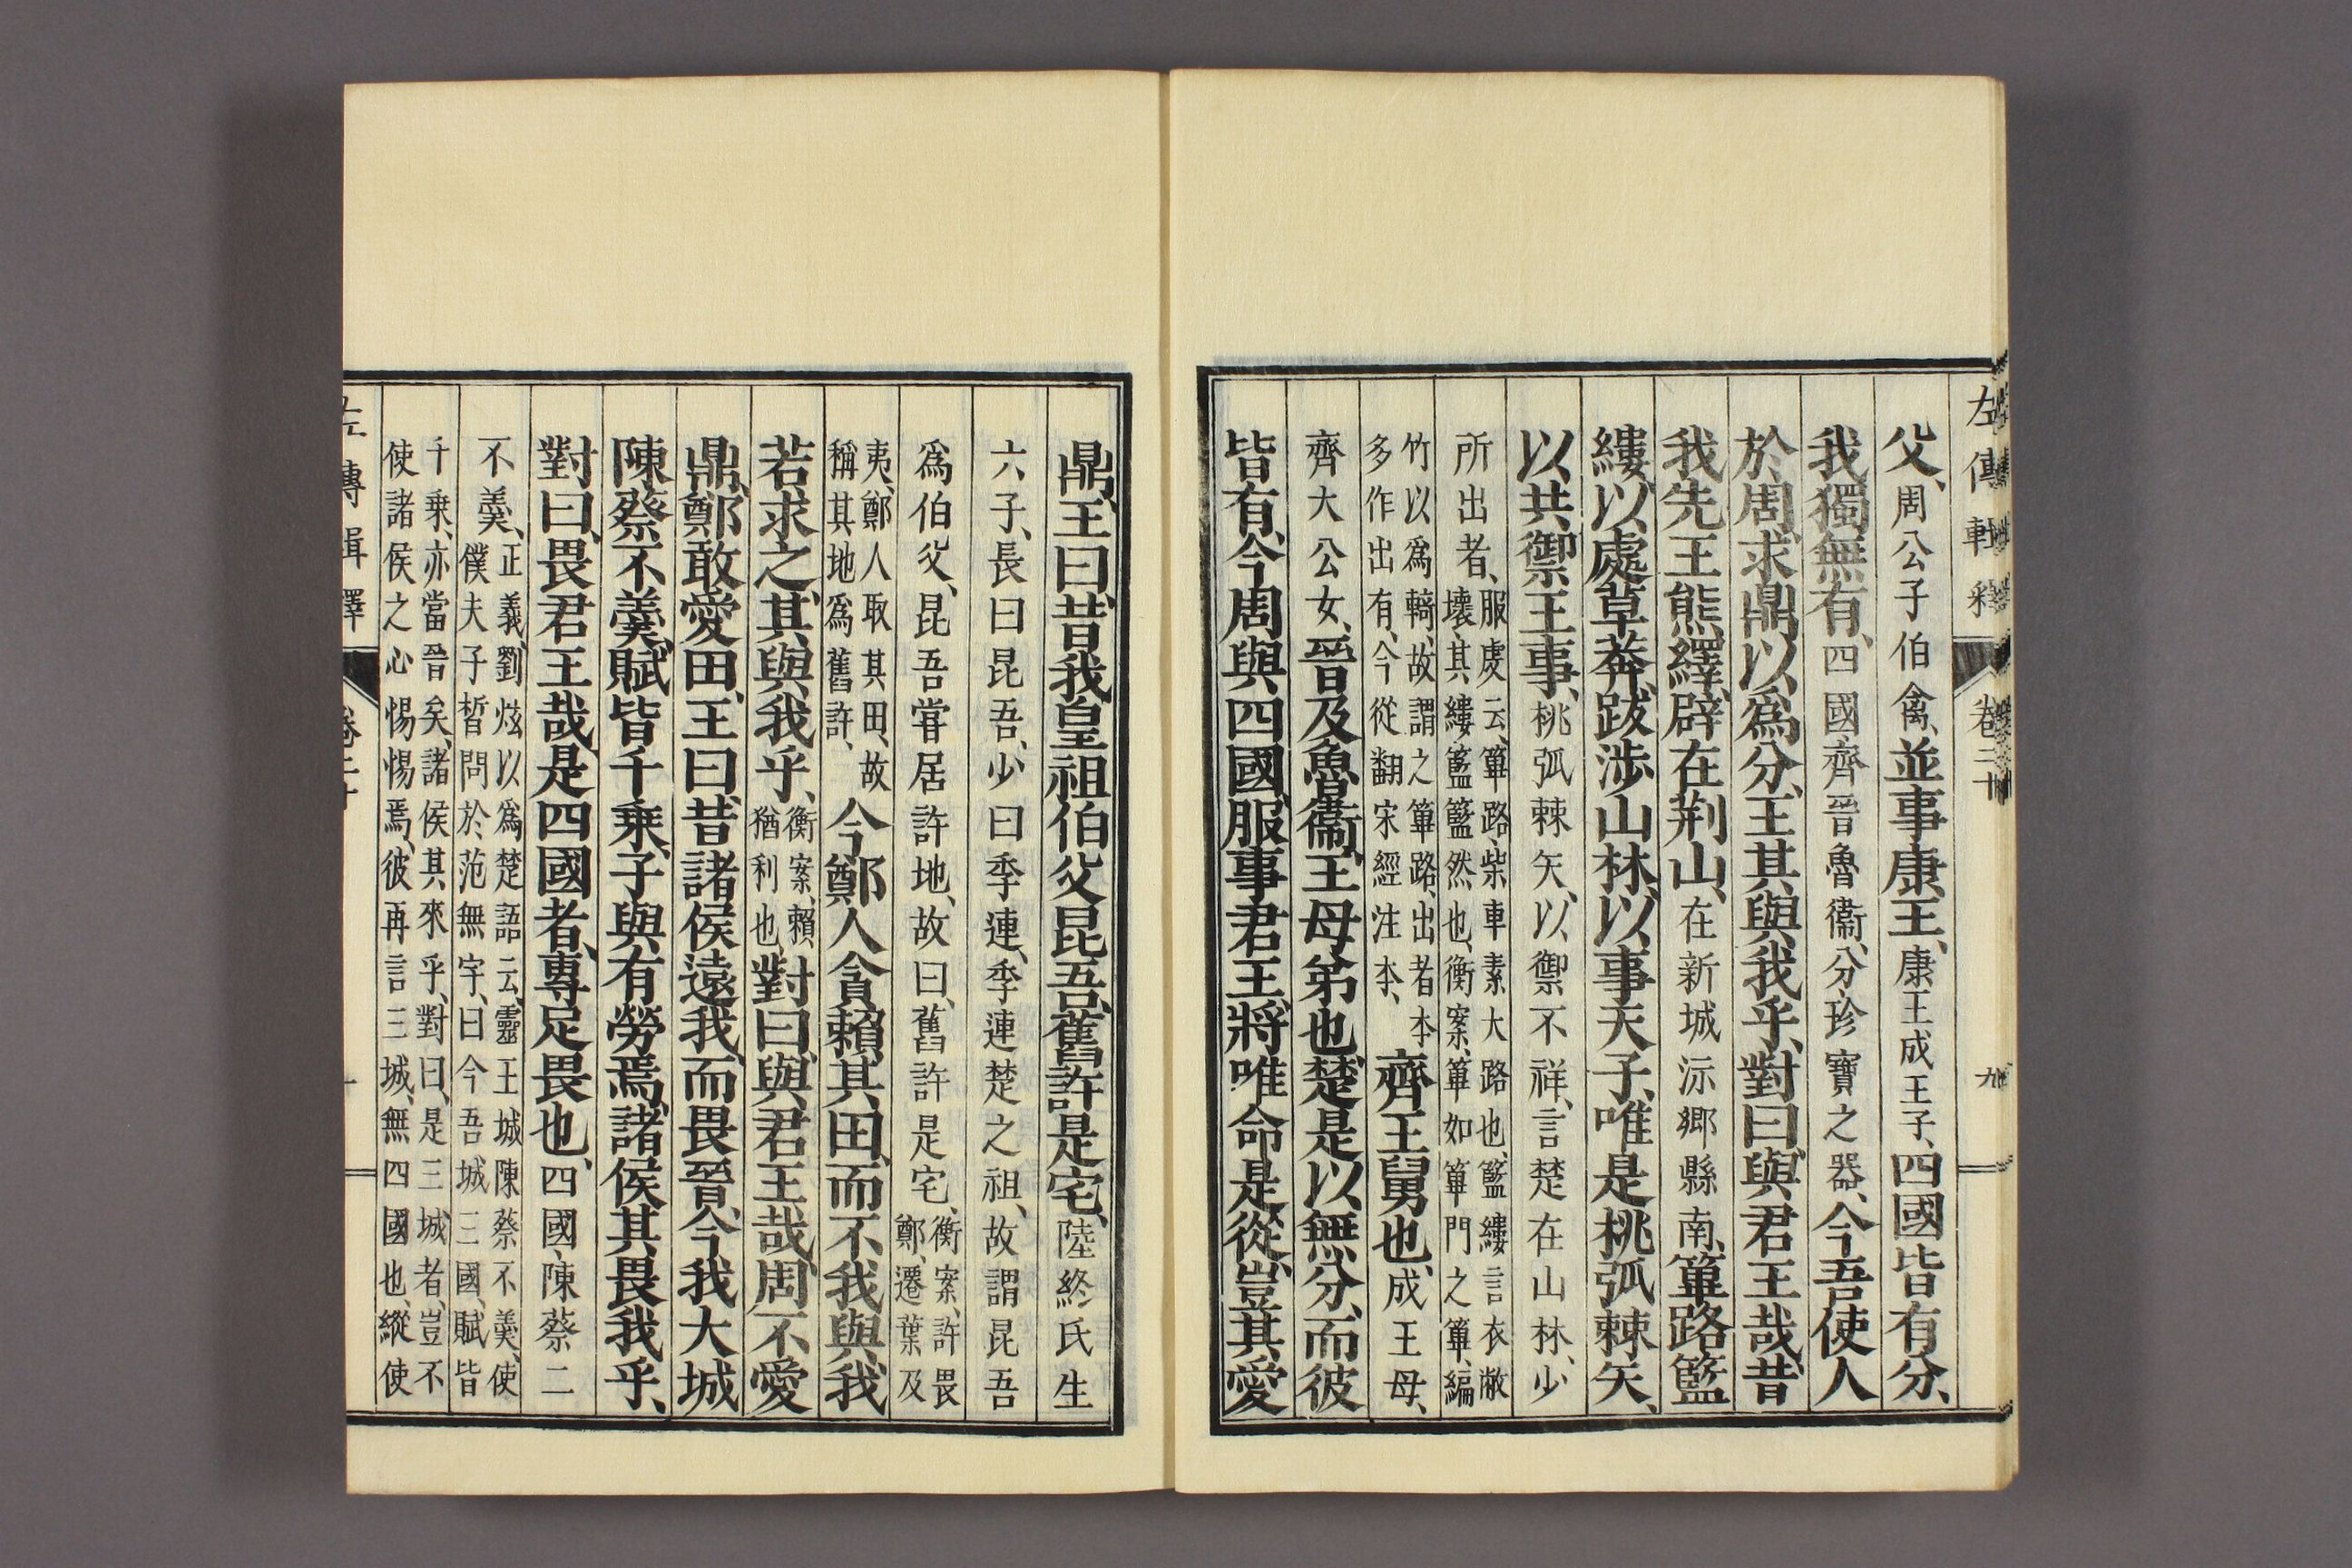 左傳輯釋 卷二十 九
父、周公子伯禽、並事康王、康王成王子、四國皆有分、
我獨無有、四國、齊晉魯衞、分、珍寶之器、今吾使人
於周、求鼎以爲分、王其與我乎、對曰、與君王哉、昔
我先王熊繹、辟在荆山、在新城沶鄉縣南、篳路籃
縷、以處草莽、跋涉山林、以事天子、唯是桃弧棘矢、
以共禦王事、桃弧棘矢、以禦不祥、言楚在山林、少
所出者、服虔云、篳路、柴車素大路也、籃縷言衣敝
壞、其縷籃籃然也、衡案、篳如篳門之篳、編
竹以爲輢、故謂之篳路、出者本
多作出有、今從翻宋經注本、齊王舅也、成王母、
齊大公女、晉及魯衞、王母弟也、楚是以無分、而彼
皆有、今周與四國、服事君王、將唯命是從、豈其愛
鼎、王曰、昔我皇祖伯父昆吾、舊許是宅、陸終氏生
六子、長曰昆吾、少曰季連、季連楚之祖、故謂昆吾
爲伯父、昆吾嘗居許地、故曰、舊許是宅、衡案、許畏鄭、遷葉及
夷、鄭人取其田、故
稱其地爲舊許、今鄭人貪賴其田、而不我與、我
若求之、其與我乎、衡案、賴猶利也、對曰、與君王哉、周不愛
鼎、鄭敢愛田、王曰、昔諸侯遠我、而畏晉、今我大城
陳蔡不羹、賦皆千乘、子與有勞焉、諸侯其畏我乎、
對曰、畏君王哉、是四國者、專足畏也、四國、陳蔡二
不羹、正義、劉炫以爲楚語云、靈王城陳蔡不羹、使
僕夫子晳問於范無宇、曰今吾城三國、賦皆
千乘、亦當晉矣、諸侯其來乎、對曰、是三城者、豈不
使諸侯之心惕惕焉、彼再言三城、無四國也、縱使